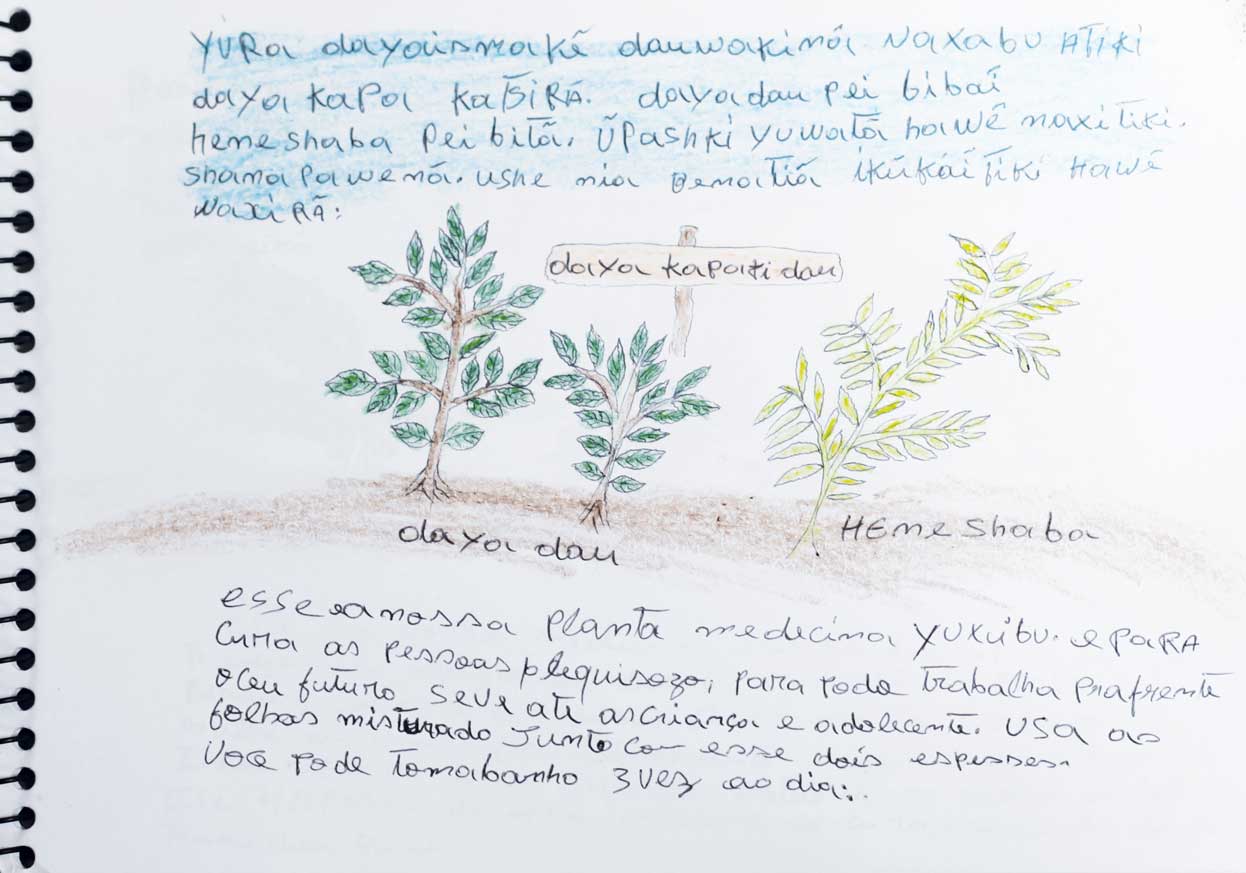 YURa dayaismakẽ dauwakinã NaXabu ATiKi
daya Kapa KaTSiRÃ. dayadau pei bibaĩ
hemeshaba Pei bitã. ŨPashKi yuwatã hawẽ naxi Tiki.
shana Pawenã. ushe nia Benatiã iKũKãi TiKi Hawẽ
NaxiRÃ:
daya Kapati dau
daya dau
HEmeshaba
esse a nossa Planta medecina YUXiBU. e PaRA
Cura as Pessoas pleguisozo, para Pode Trabalha Prafrente
o ceu futuro. Seve ate as criança e adolecente. USA as
folhas misturado Junto com esse dois espesses.
Voce Pode Tomabanho 3 vez ao dia:.